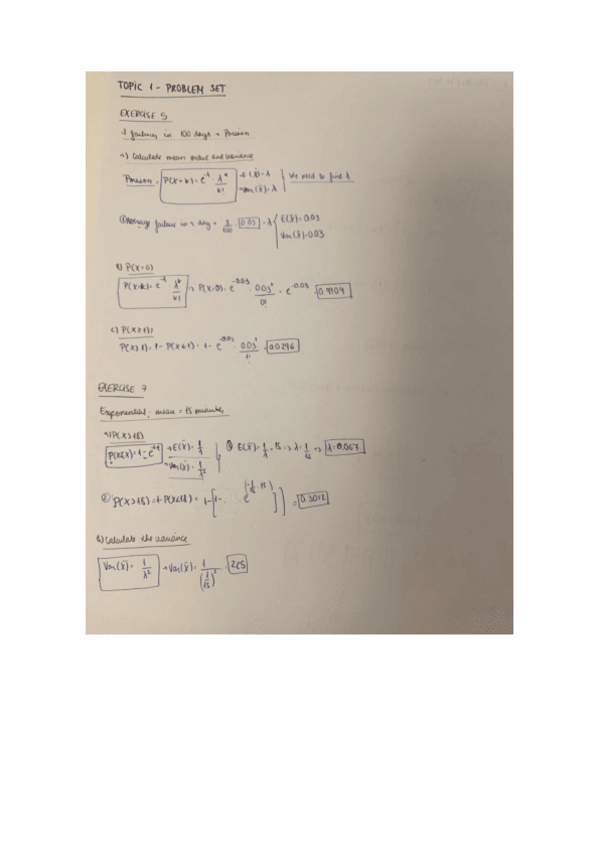 TOPIC 1 - PROBLEM SET
EXERCISE 5
3 failures in 100 days = Poisson
a) Calculate mean value and variance
Poisson = P(X=k) = e^-λ λ^k/k! → E(X) = λ → Var(X) = λ We need to find λ
① Average failure in 1 day = 3/100 = 0.03 = λ E(X) = 0.03 Var(X) = 0.03
b) P(X=0)
P(X=k) = e^-λ · λ^k/k! → P(X=0) = e^-0.03 · 0.03^0/0! = e^-0.03 = 0.9704
c) P(X≥1)
0.0296
EXERCISE 7
Exponential; mean = 15 minutes
a) P(X>18)
P(X≤x) = 1 - e^-λx → E(X) = 1/λ → Var(X) = 1/λ² ① E(X) = 1/λ = 15 → λ = 1/15 → λ = 0.067
② P(X>18) = 1 - P(X≤18) = 1 - [1 - e = 0.3012
b) Calculate the variance
Var(X) = 1/λ² → Var(X) = 1/(1/15)² = 225